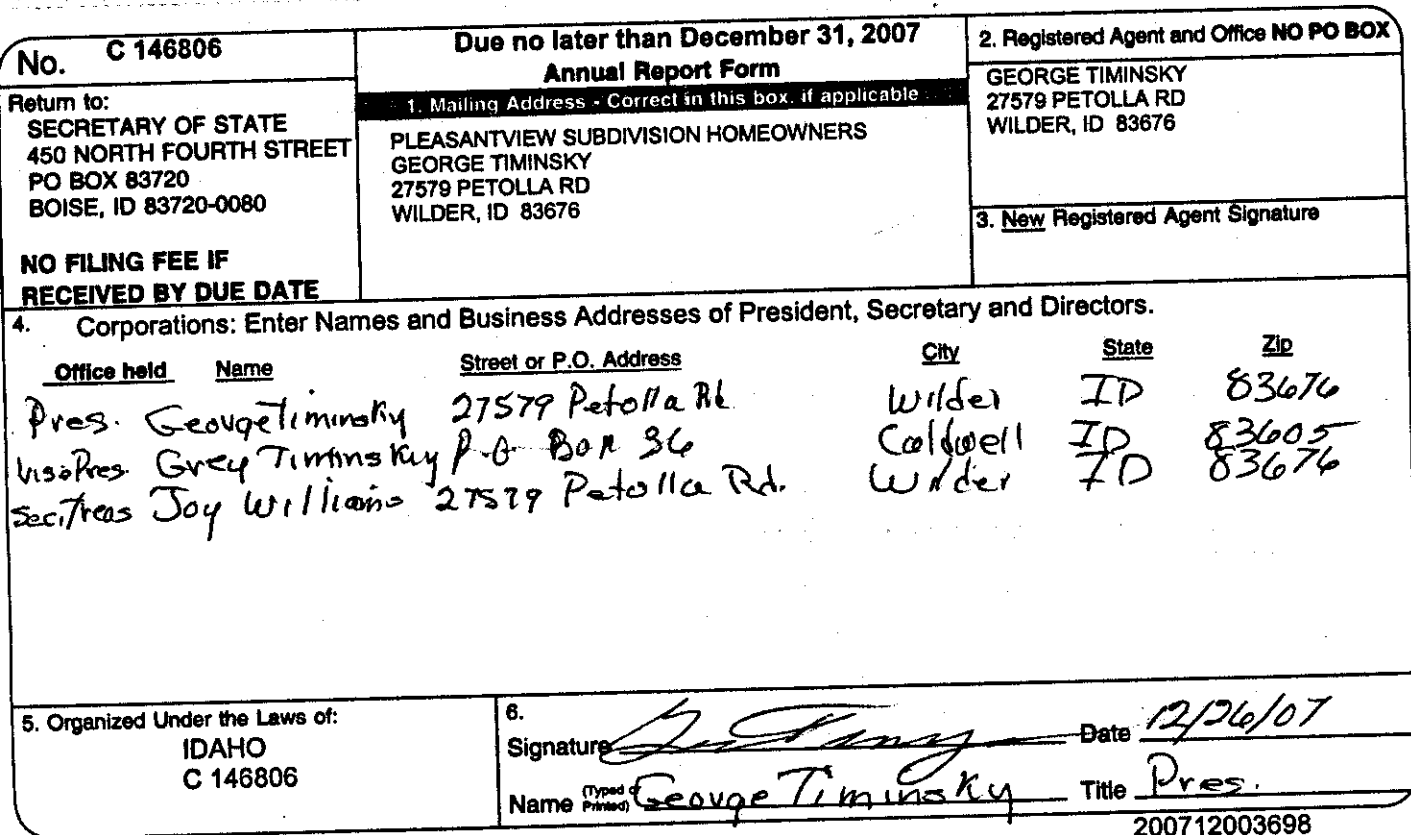 No. C 146806
Return to:
SECRETARY OF STATE
450 NORTH FOURTH STREET
PO BOX 83720
BOISE, ID 83720-0080
NO FILING FEE IF
RECEIVED BY DUE DATE
Due no later than December 31, 2007
Annual Report Form
1. Mailing Address - Correct in this box, if applicable
PLEASANTVIEW SUBDIVISION HOMEOWNERS
GEORGE TIMINSKY
27579 PETOLLA RD
WILDER, ID 83676
2. Registered Agent and Office NO PO BOX
GEORGE TIMINSKY
27579 PETOLLA RD
WILDER, ID 83676
3. New Registered Agent Signature
4. Corporations: Enter Names and Business Addresses of President, Secretary and Directors.
Office held Name Street or P.O. Address City State Zip
Pres. George Timinsky 27579 Petolla Rd Wilder ID 83676
Vise Pres. Grey Timinskuy P.O. Box 36 Caldwell ID 83605
Sec./Treas Joy Williams 27579 Petolla Rd. Wilder ID 83676
5. Organized Under the Laws of:
IDAHO
C 146806
6.
Signature Date 12/26/07
Name (Typed or Printed) George Timinsky Title Pres.
200712003698